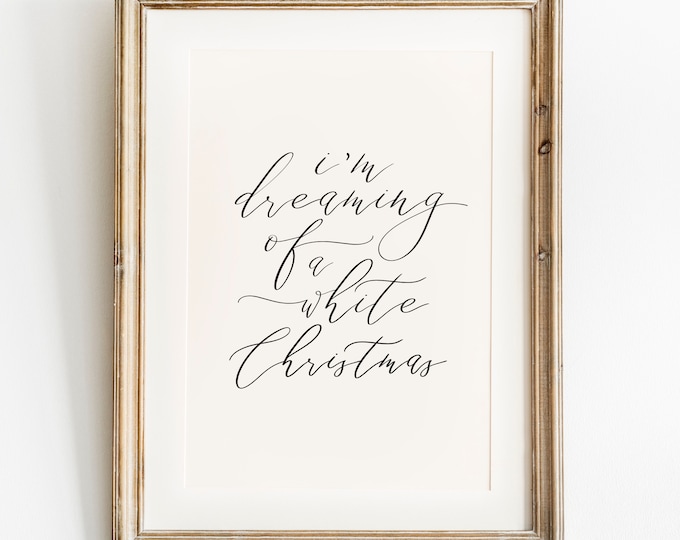 i'm
dreaming
of a
white
Christmas